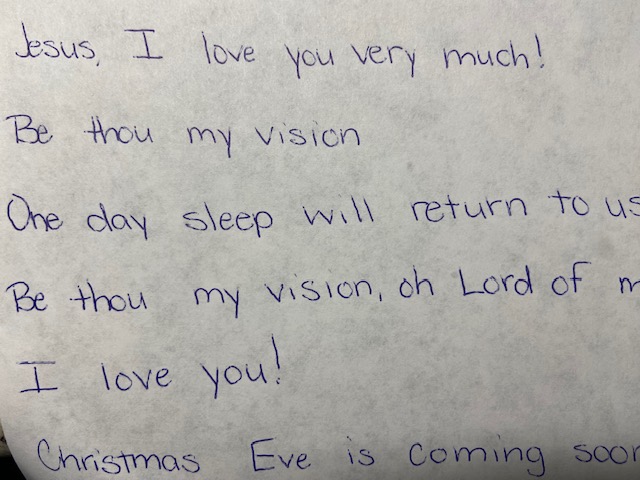 Jesus, I love you very much!
Be thou my vision
One day sleep will return to us
Be thou my vision, oh Lord of
I love you!
Christmas Eve is coming soon